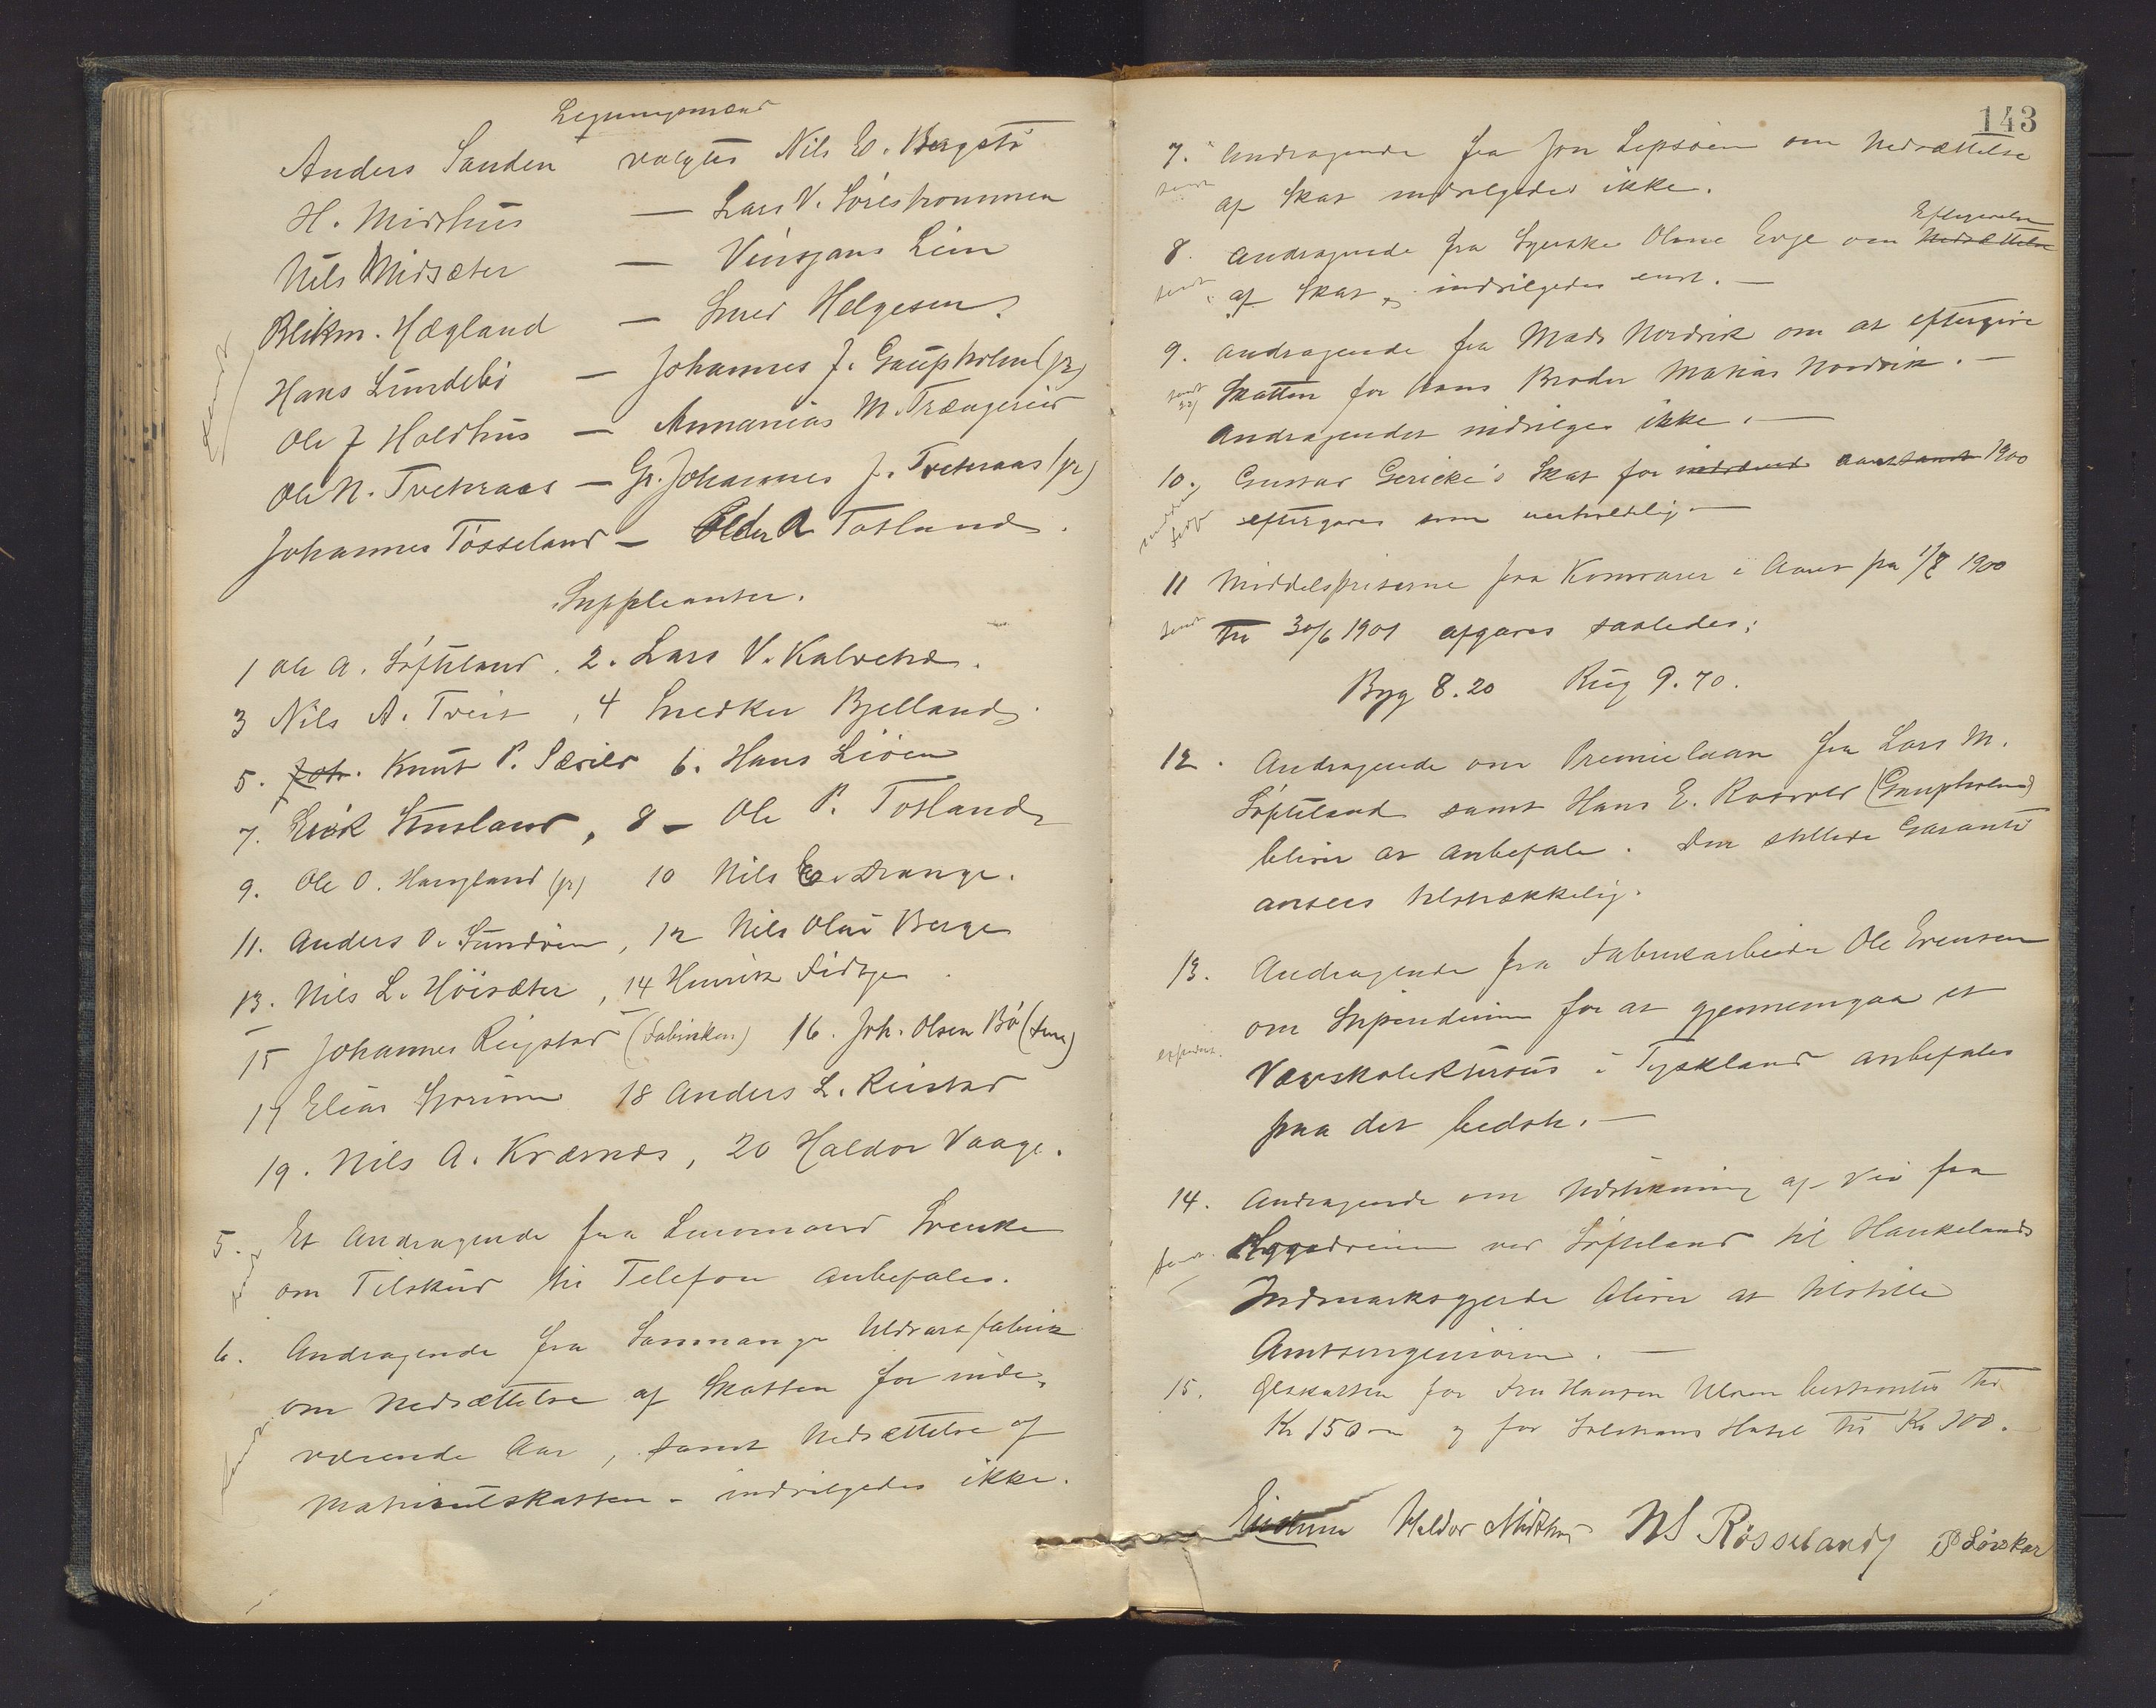 Ligningsmænd
Anders Sanden valgtes Nils E. Bergstø
H. Midthus — Lars V. Sörestrommen
Nils Midsæter — Vinsjans Lim
Blikm. Hægland — Smed Helgesen
Hans Lundebö — Johannes J. Gaupholm (jr)
Ole J Holdhus — Annanias M. Trængereid
Ole N. Tveteraas — Gr. Johannes J. Tveteraas (jr)
Johannes Tösseland — Peder A Totland.
Suppleanter.
1 Ole A. Söfteland. 2. Lars V. Kalvenæs.
3 Nils A. Tveit, 4 Snedker Bjelland.
5. Joh. Knut P. Sævild 6. Hans Liöen
7. Erik Husland, 8 — Ole P. Totland
9. Ole O. Haugland (jr) 10 Nils E. Drange.
11. Anders O. Sundvim, 12 Nils Olai Berge
13. Nils L. Höisæter, 14 Henrik Fidtje.
15 Johannes Reigstad (Fabriken) 16. Joh. Olsen Bö
17 Elias 18 Anders L. Reistad
19. Nils A. Kvernes, 20 Haldor Vaage.
5. Et Andragende fra Lensmand Svenke
om Tilskud til Telefon anbefales.
6. Andragende fra Samnanger Uldvarefabrik
om Nedsættelse af Skatten for inde-
værende Aar, samt Nedsættelse af
Matrikulskatten - indvilgedes ikke.
143
7. Andragende fra Jon Lepsöen om Nedsættelse
sendt
af Skat indvilgedes ikke.
Eftergivelse
8. Andragende fra Syerske Oline Evje om Nedsættelse
sendt
af Skat indvilgedes enst. —
9. Andragende fra Mads Nordvik om at eftergive
sendt
Skatten for hans Broder Mathias Nordvik. —
Andragendet indvilges ikke. —
10. Gustav Gericke's Skat for 1900
eftergives som uerholdelig —
11 Middelspriserne for Kornvarer i Aaret fra 1/7 1900
sendt
til 30/6 1901 afgaves saaledes:
Byg 8.20 Rug 9.70.
12. Andragende om Premielaan fra Lars M.
Söfteland samt Hans E. Rosvold (Gaupholm)
bliver at anbefale. Den stillede Garanti
ansees tilstrækkelig.
13. Andragende fra Fabrikarbeider Ole Evensen
om Stipendium for at gjennemgaa et
exped.
Vævskolekursus i Tyskland anbefales
paa det bedste. —
14. Andragende om Udstikning af Vei fra
Hyggedveien ved Söfteland til Haukelands
Indmarksgjerde bliver at tilstille
Amtsingeniören. —
15. Ølskatten for Fru Hansen Ulven bestemtes til
Kr 150 — og for Solstrans Hotel til Kr 300.
Haldor Midthus NS Røsseland P Lönskar